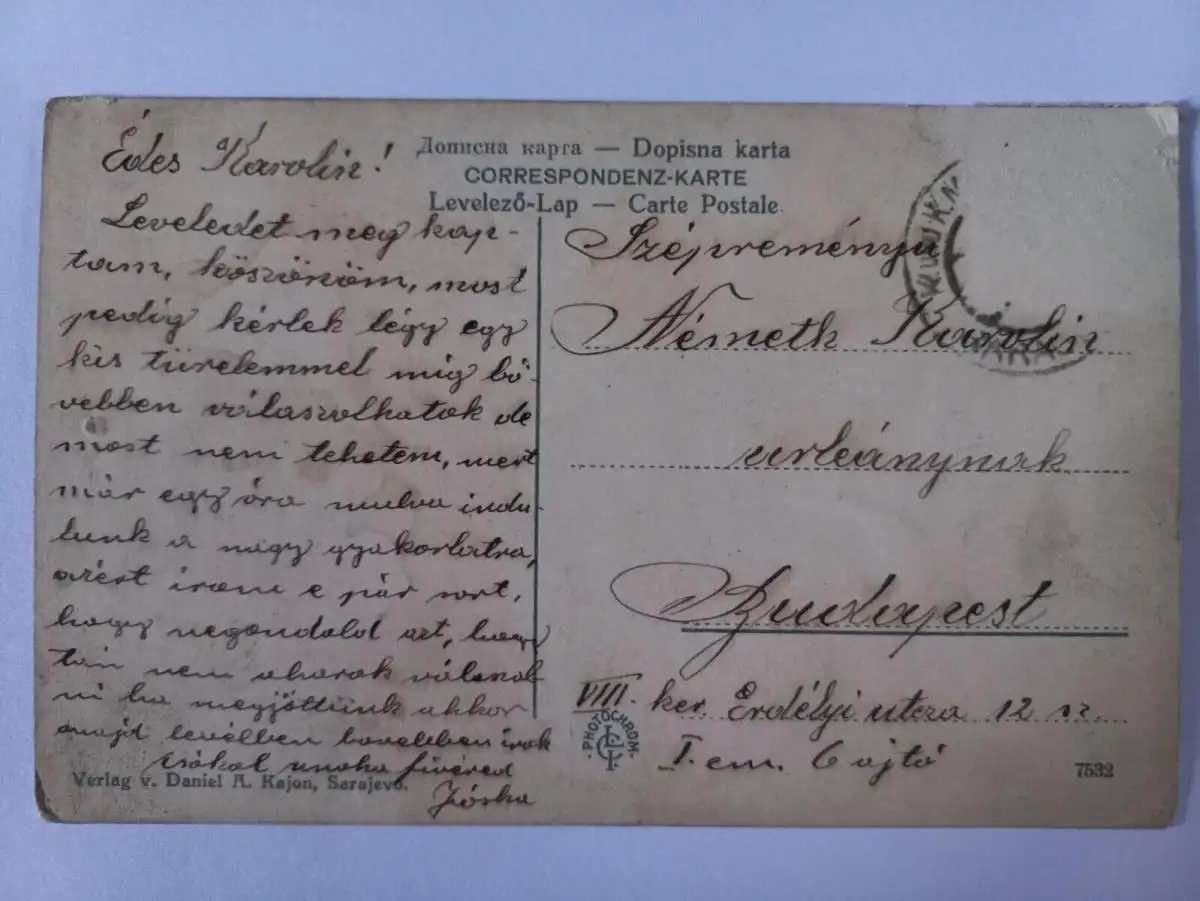 Édes Karolin!
Leveledet meg kap-
tam, köszönöm, most
pedig kérlek légy egy
kis türelemmel mig bő-
vebben válaszolhatok de
most nem tehetem, mert
már egy óra mulva indu-
lunk a nagy gyakorlatra,
azért irom e pár sort,
hogy negondold azt, hogy
tán nem akarok válaszol-
ni ha megjöttünk akkor
majd levélben bővebben irok
csókol unoka fivéred
Jóska
Verlag v. Daniel A. Kajon, Sarajevo.
Дописна карта — Dopisna karta
CORRESPONDENZ-KARTE
Levelező-Lap — Carte Postale
Szépreményü
Németh Karolin
urleánynak
Budapest
VIII. ker. Erdélyi utcza 12 sz.
I. em. 6 ajtó
PHOTOCHROM
7532